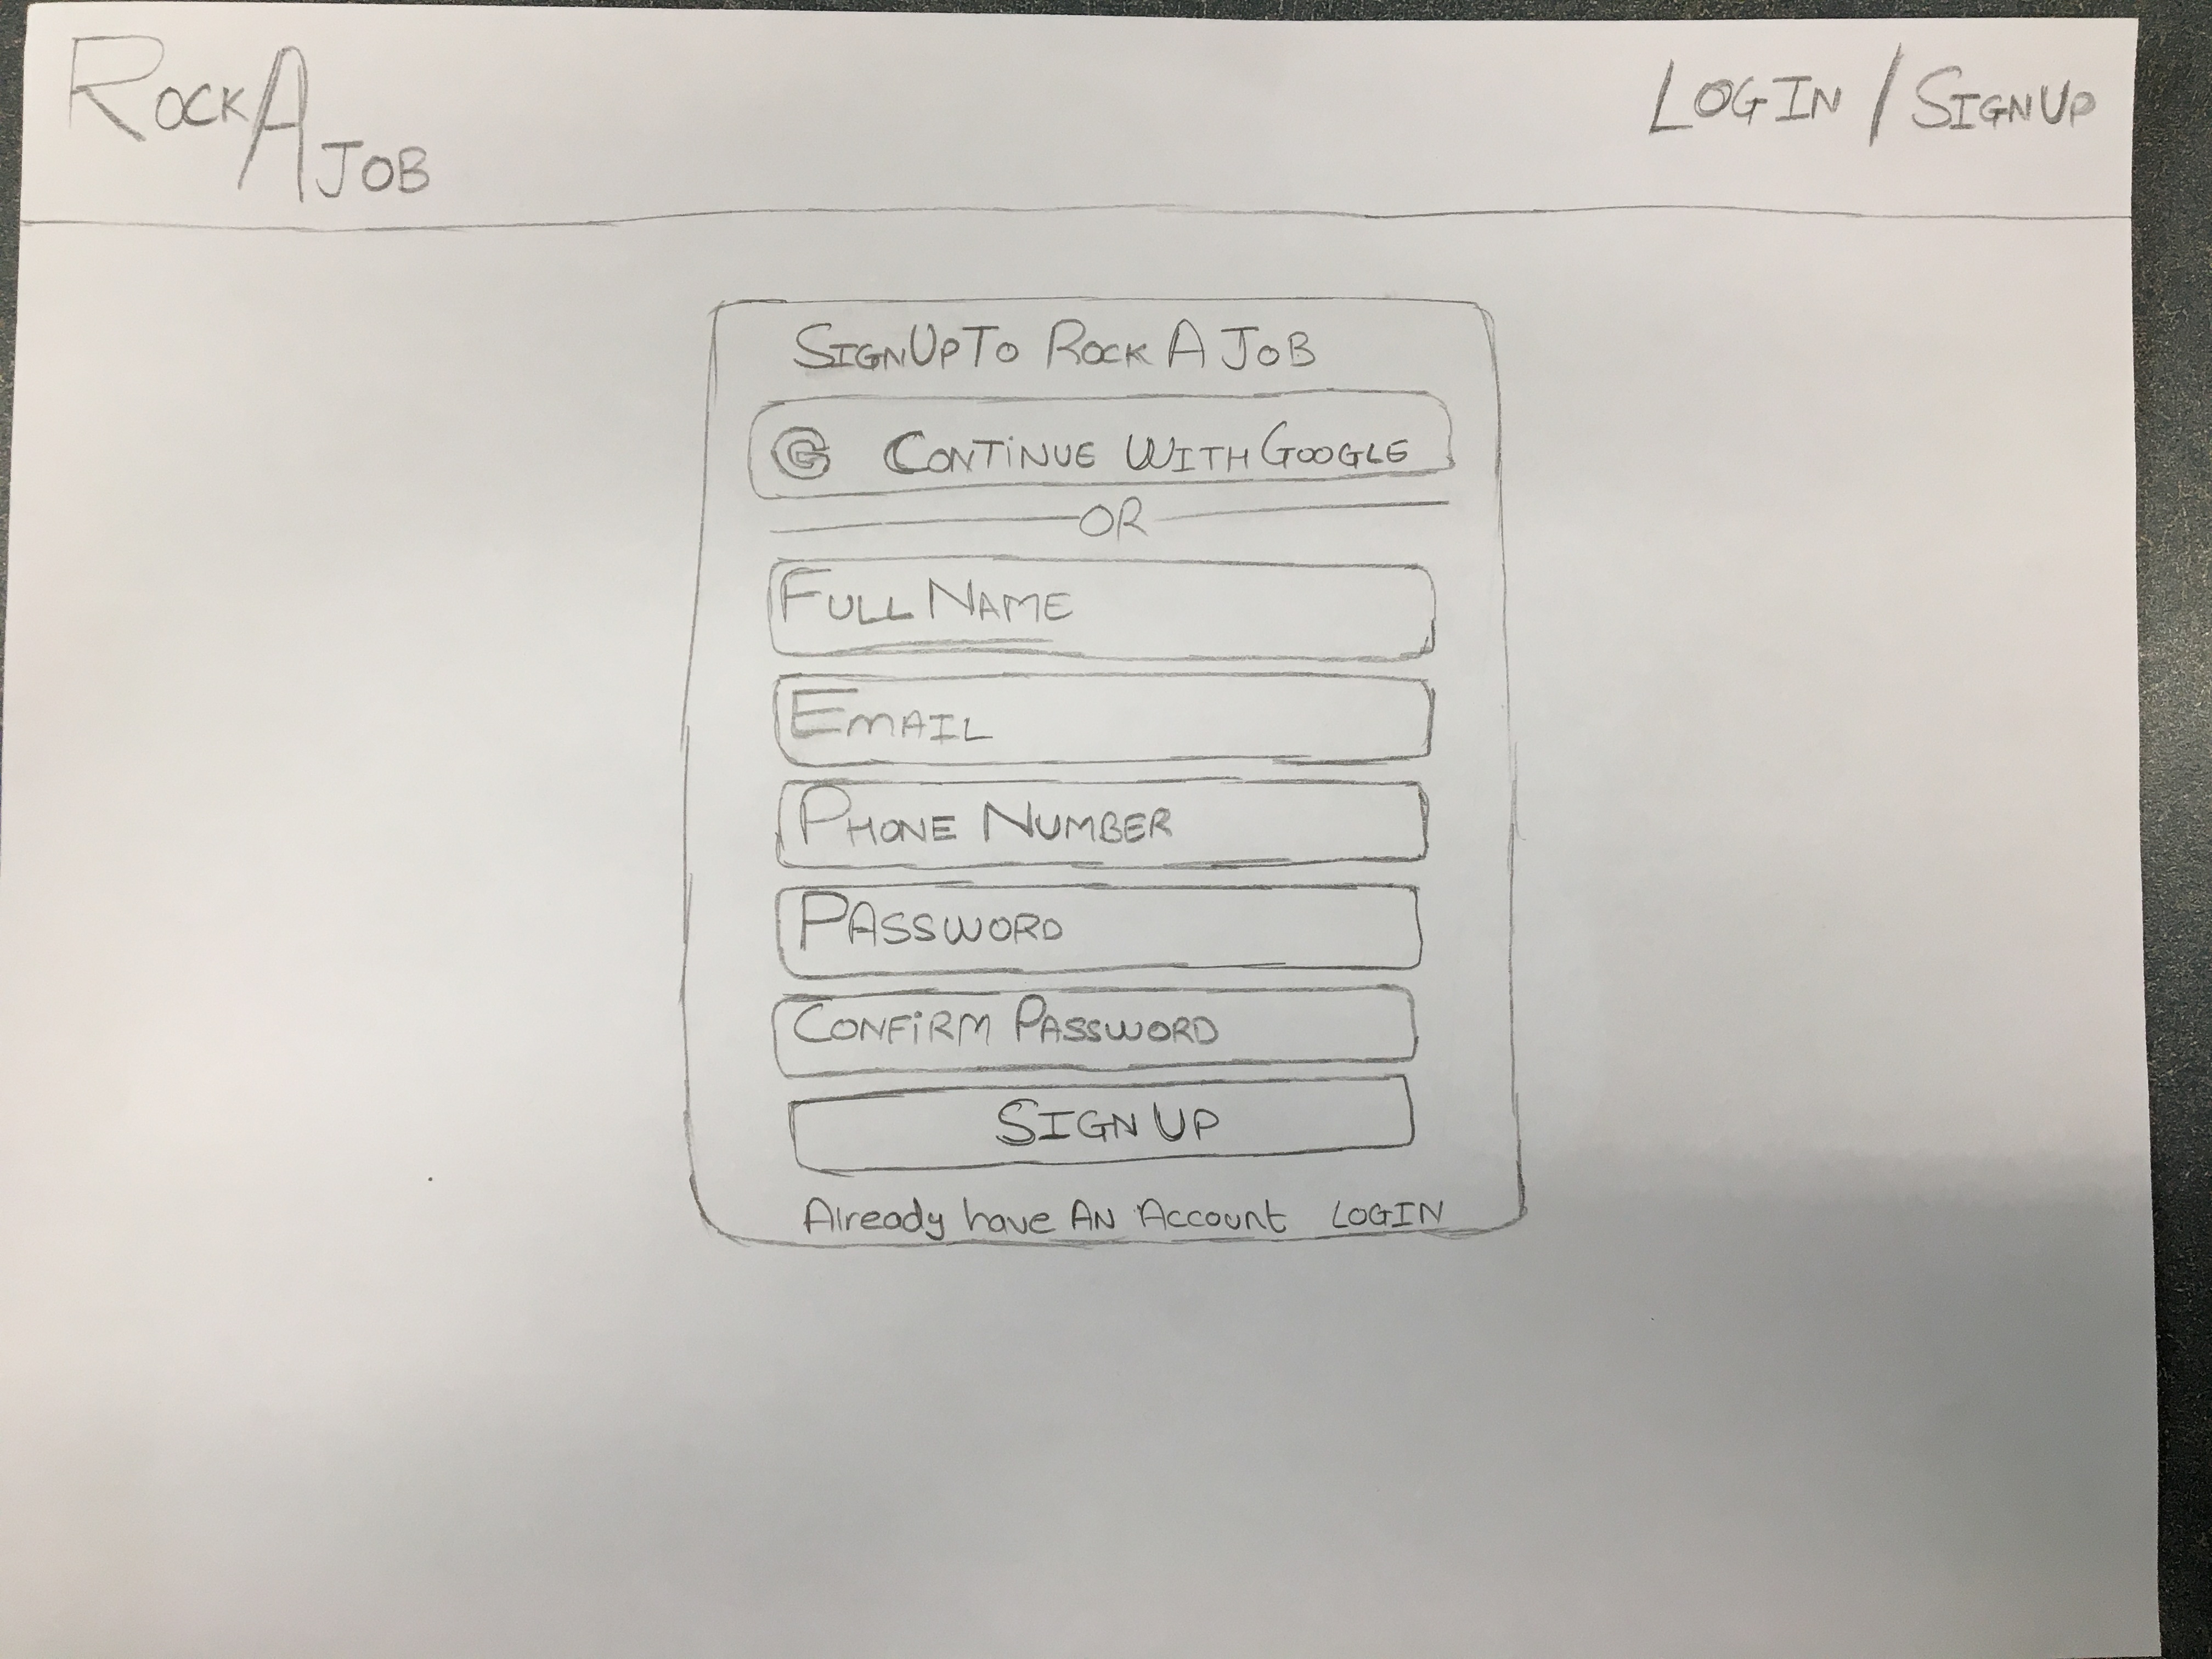 ROCK A JOB
LOGIN / SIGNUP
SIGNUP TO ROCK A JOB
G CONTiNUE WITH GOOGLE
OR
FULL NAME
EMAIL
PHONE NUMBER
PASSWORD
CONFiRM PASSWORD
SIGN UP
Already have AN Account LOGIN